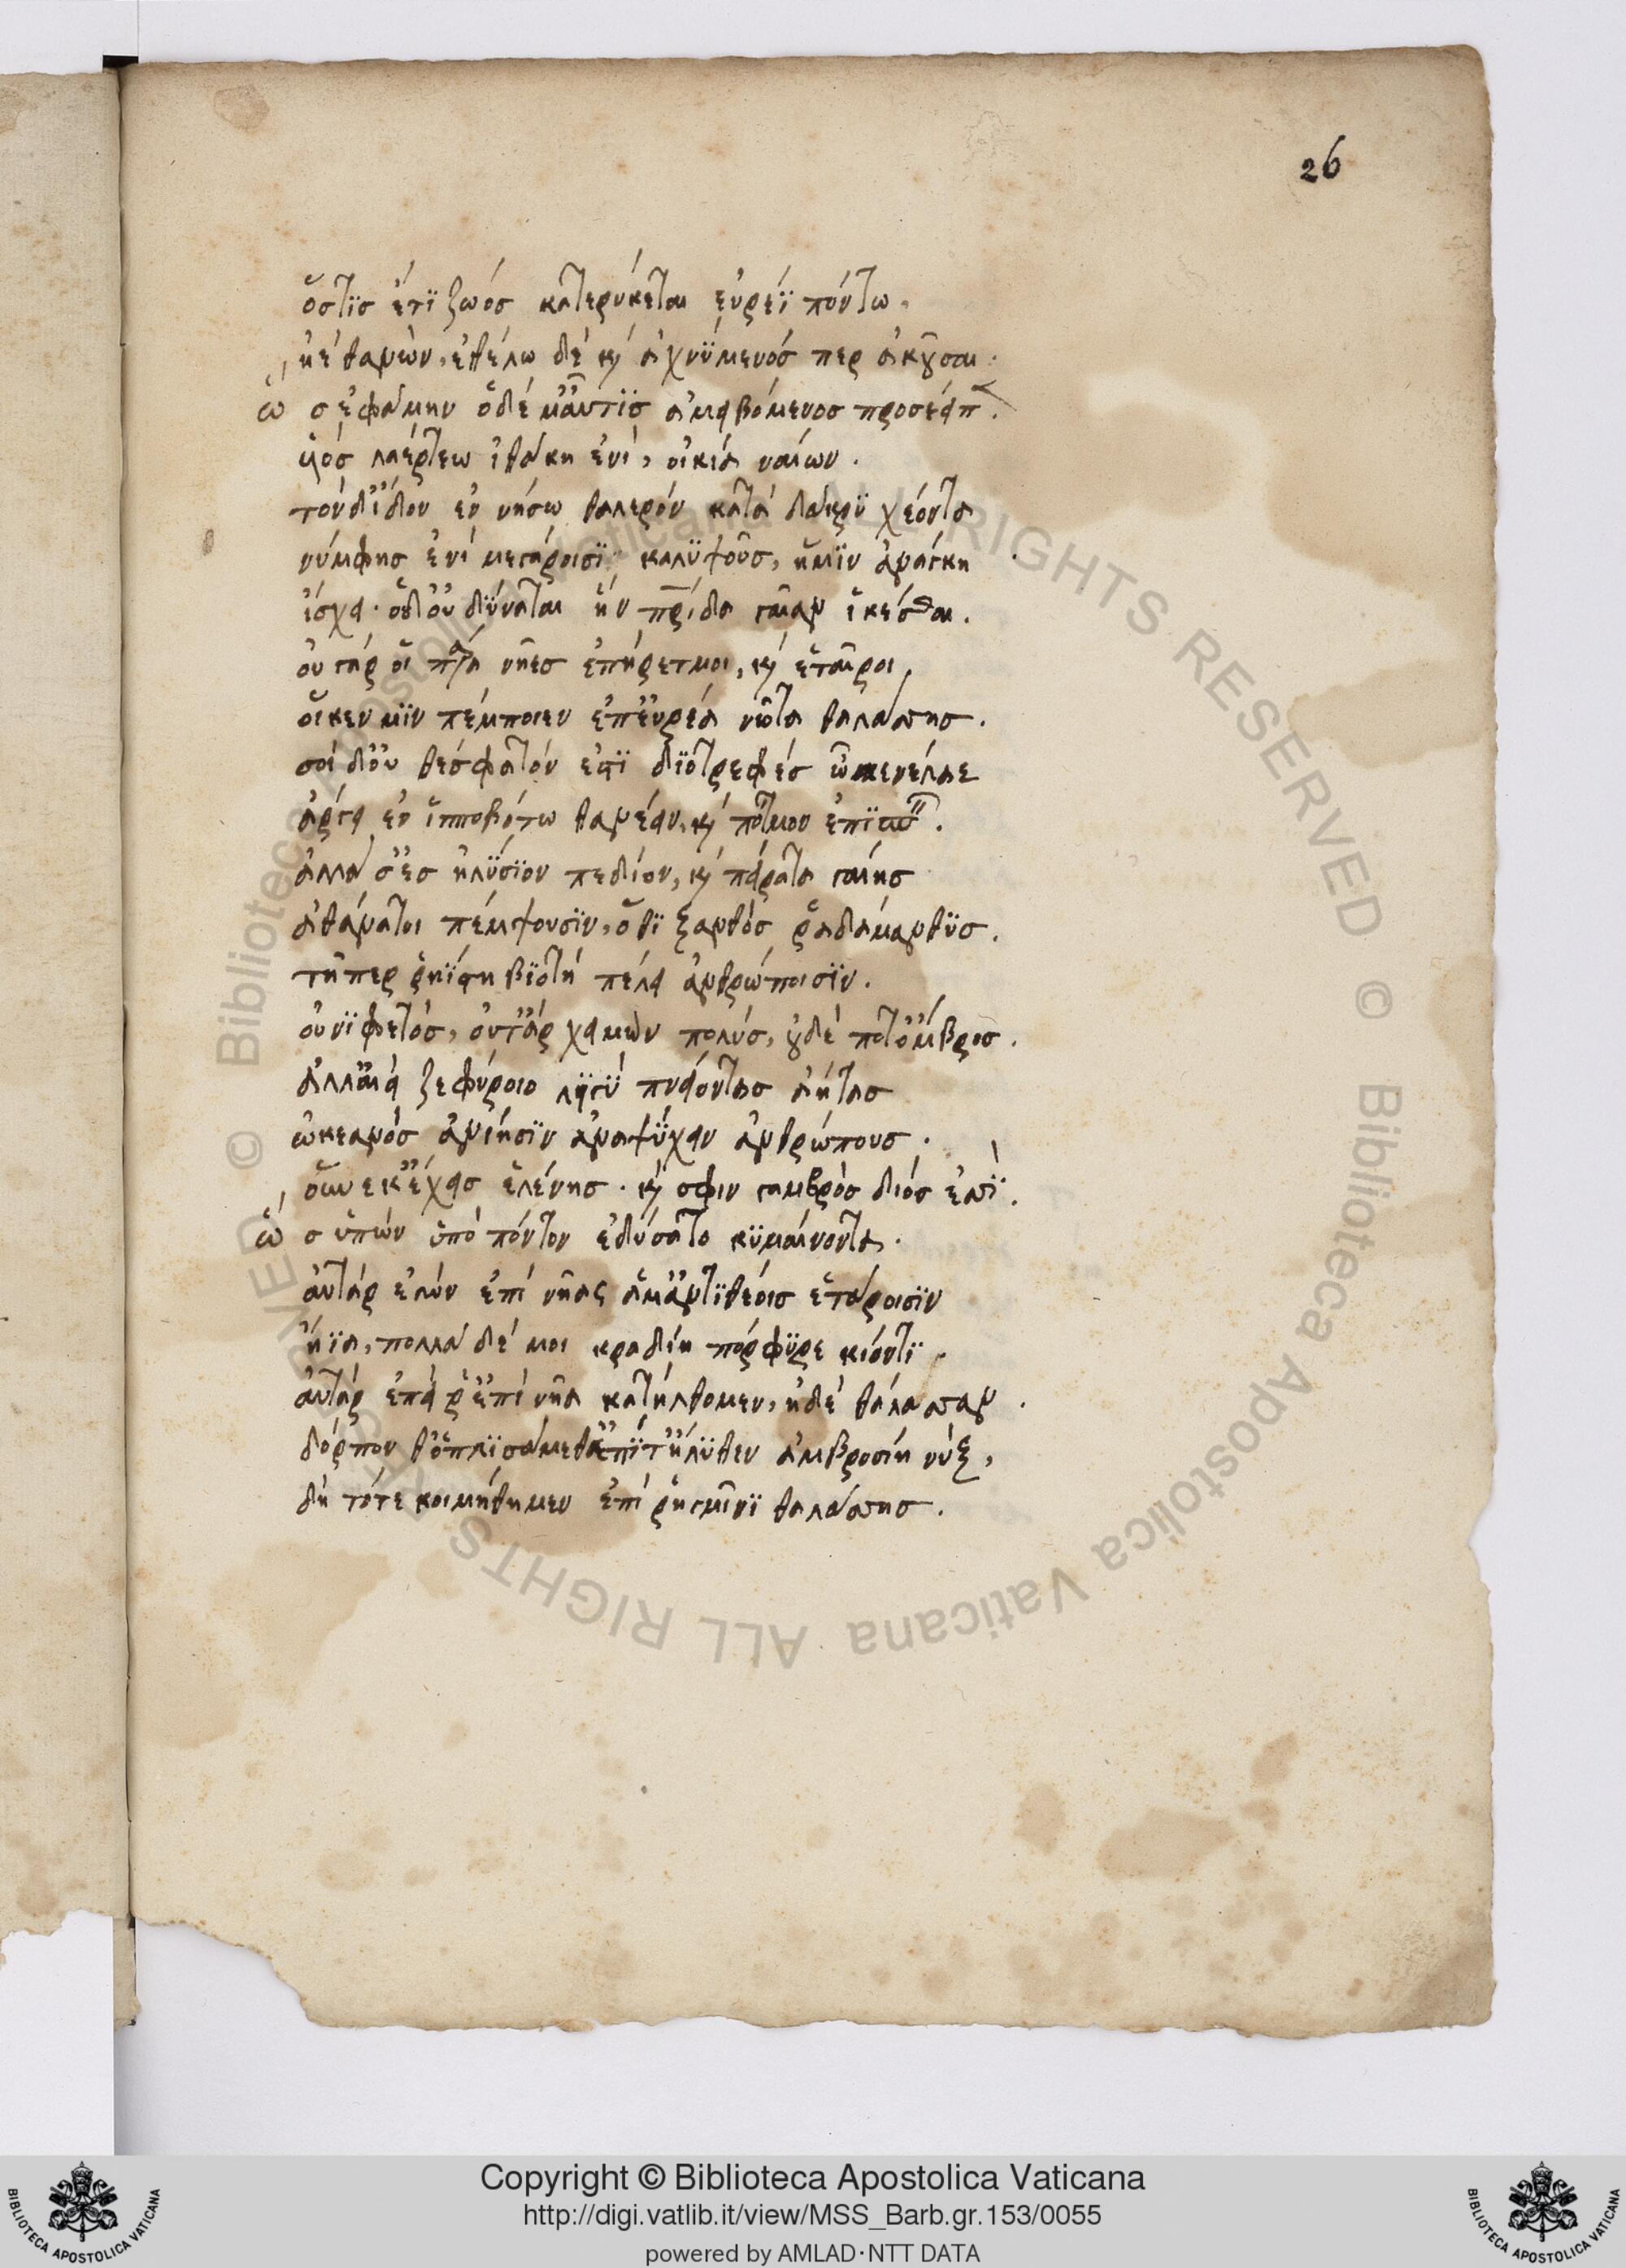 26
ὅστϊς ἔτϊ ζωὸς κατερύκεται εὐρέϊ πόντω,
ἠὲ θανὼν, ἐθέλω δὲ καὶ ἀχνΰμενός περ ἀκοῦσαι.
ὣς ἐφάμην ὁ δέ μ' αὖτϊς ἀμειβόμενος προσέειπε.
υἱὸς λαέρτεω ἰθάκη ἐνὶ, οἰκία ναίων.
τὸν δ' ἴδον ἐν νήσω θαλερὸν κατὰ δάκρϋ χέοντα
νύμφης ἐνὶ μεγάροισϊ καλϋψοῦς, ἥ μϊν ἀνάγκη
ἴσχει. ὁ δ' οὐ δΰναται ἣν πατρίδα γαῖαν ἱκέσθαι.
οὐ γάρ οἱ πάρα νῆες ἐπήρετμοι, καὶ ἑταῖροι,
οἵ κεν μϊν πέμποιεν ἐπ' εὐρέα νῶτα θαλάσσης.
σοὶ δ' οὐ θέσφατόν ἐστϊ διϊοτρεφὲς ὦ μενέλαε
ἄργει ἐν ἱπποβότω θανέειν, καὶ πότμον ἐπϊσπεῖν.
ἀλλά σ' ἐς ἠλΰσϊον πεδίον, καὶ πείρατα γαίης
ἀθάνατοι πέμψουσϊν, ὅθϊ ξανθὸς ῥαδάμανθϋς.
τῆπερ ῥηΐστη βϊοτὴ πέλει ἀνθρώποισϊν.
οὐ νϊφετὸς, οὔτ' ἂρ χειμὼν πολὺς, οὐδέ ποτ' ὄμβρος.
ἀλλ' αἰεὶ ζεφύροιο λϊγὺ πνείοντας ἀήτας
ὠκεανὸς ἀνίησϊν ἀναψΰχειν ἀνθρώπους.
οὕνεκ' ἔχεις ἑλένην. καί σφιν γαμβρὸς διός ἐσσϊ.
ὣς εἰπὼν ὑπὸ πόντον ἐδύσατο κϋμαίνοντα.
αὐτὰρ ἐγὼν ἐπὶ νῆας ἅμ' ἀντϊθέοις ἑτάροισϊν
ἤϊα, πολλὰ δέ μοι κραδίη πόρφϋρε κιόντϊ.
αὐτὰρ ἐπεί ῥ' ἐπὶ νῆα κατήλθομεν, ἠδὲ θάλασσαν.
δόρπον θ' ὁπλϊσάμεθα ἐπΐ τ' ἤλϋθεν ἀμβροσίη νὺξ,
δὴ τότε κοιμήθημεν ἐπὶ ῥηγμῖνϊ θαλάσσης.
Copyright © Biblioteca Apostolica Vaticana
http://digi.vatlib.it/view/MSS_Barb.gr.153/0055
powered by AMLAD·NTT DATA